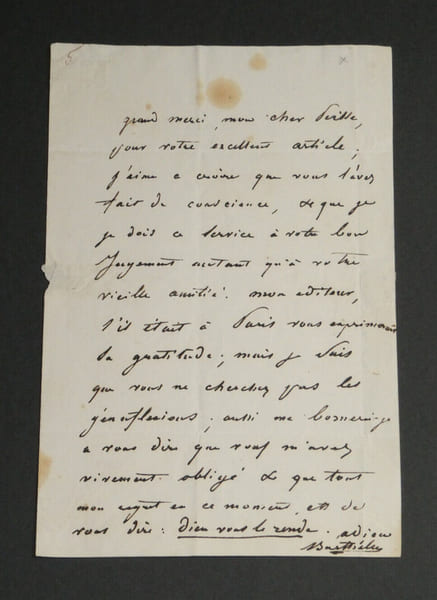 5
grand merci, mon cher
pour votre excellent article;
j'aime a croire que vous l'avez
fait de conscience, & que je
je dois ce service à votre bon
Jugement autant qu'à votre
vieille amitié. mon editeur,
s'il était à Paris vous exprimerait
sa gratitude; mais je sais
que vous ne cherchez pas les
génuflexions; aussi me bornerai-je
a vous dire que vous m'avez
vivement obligé & que tout
mon regret en ce moment, est de
vous dire: dieu vous le rende. adieu
Barthélemy